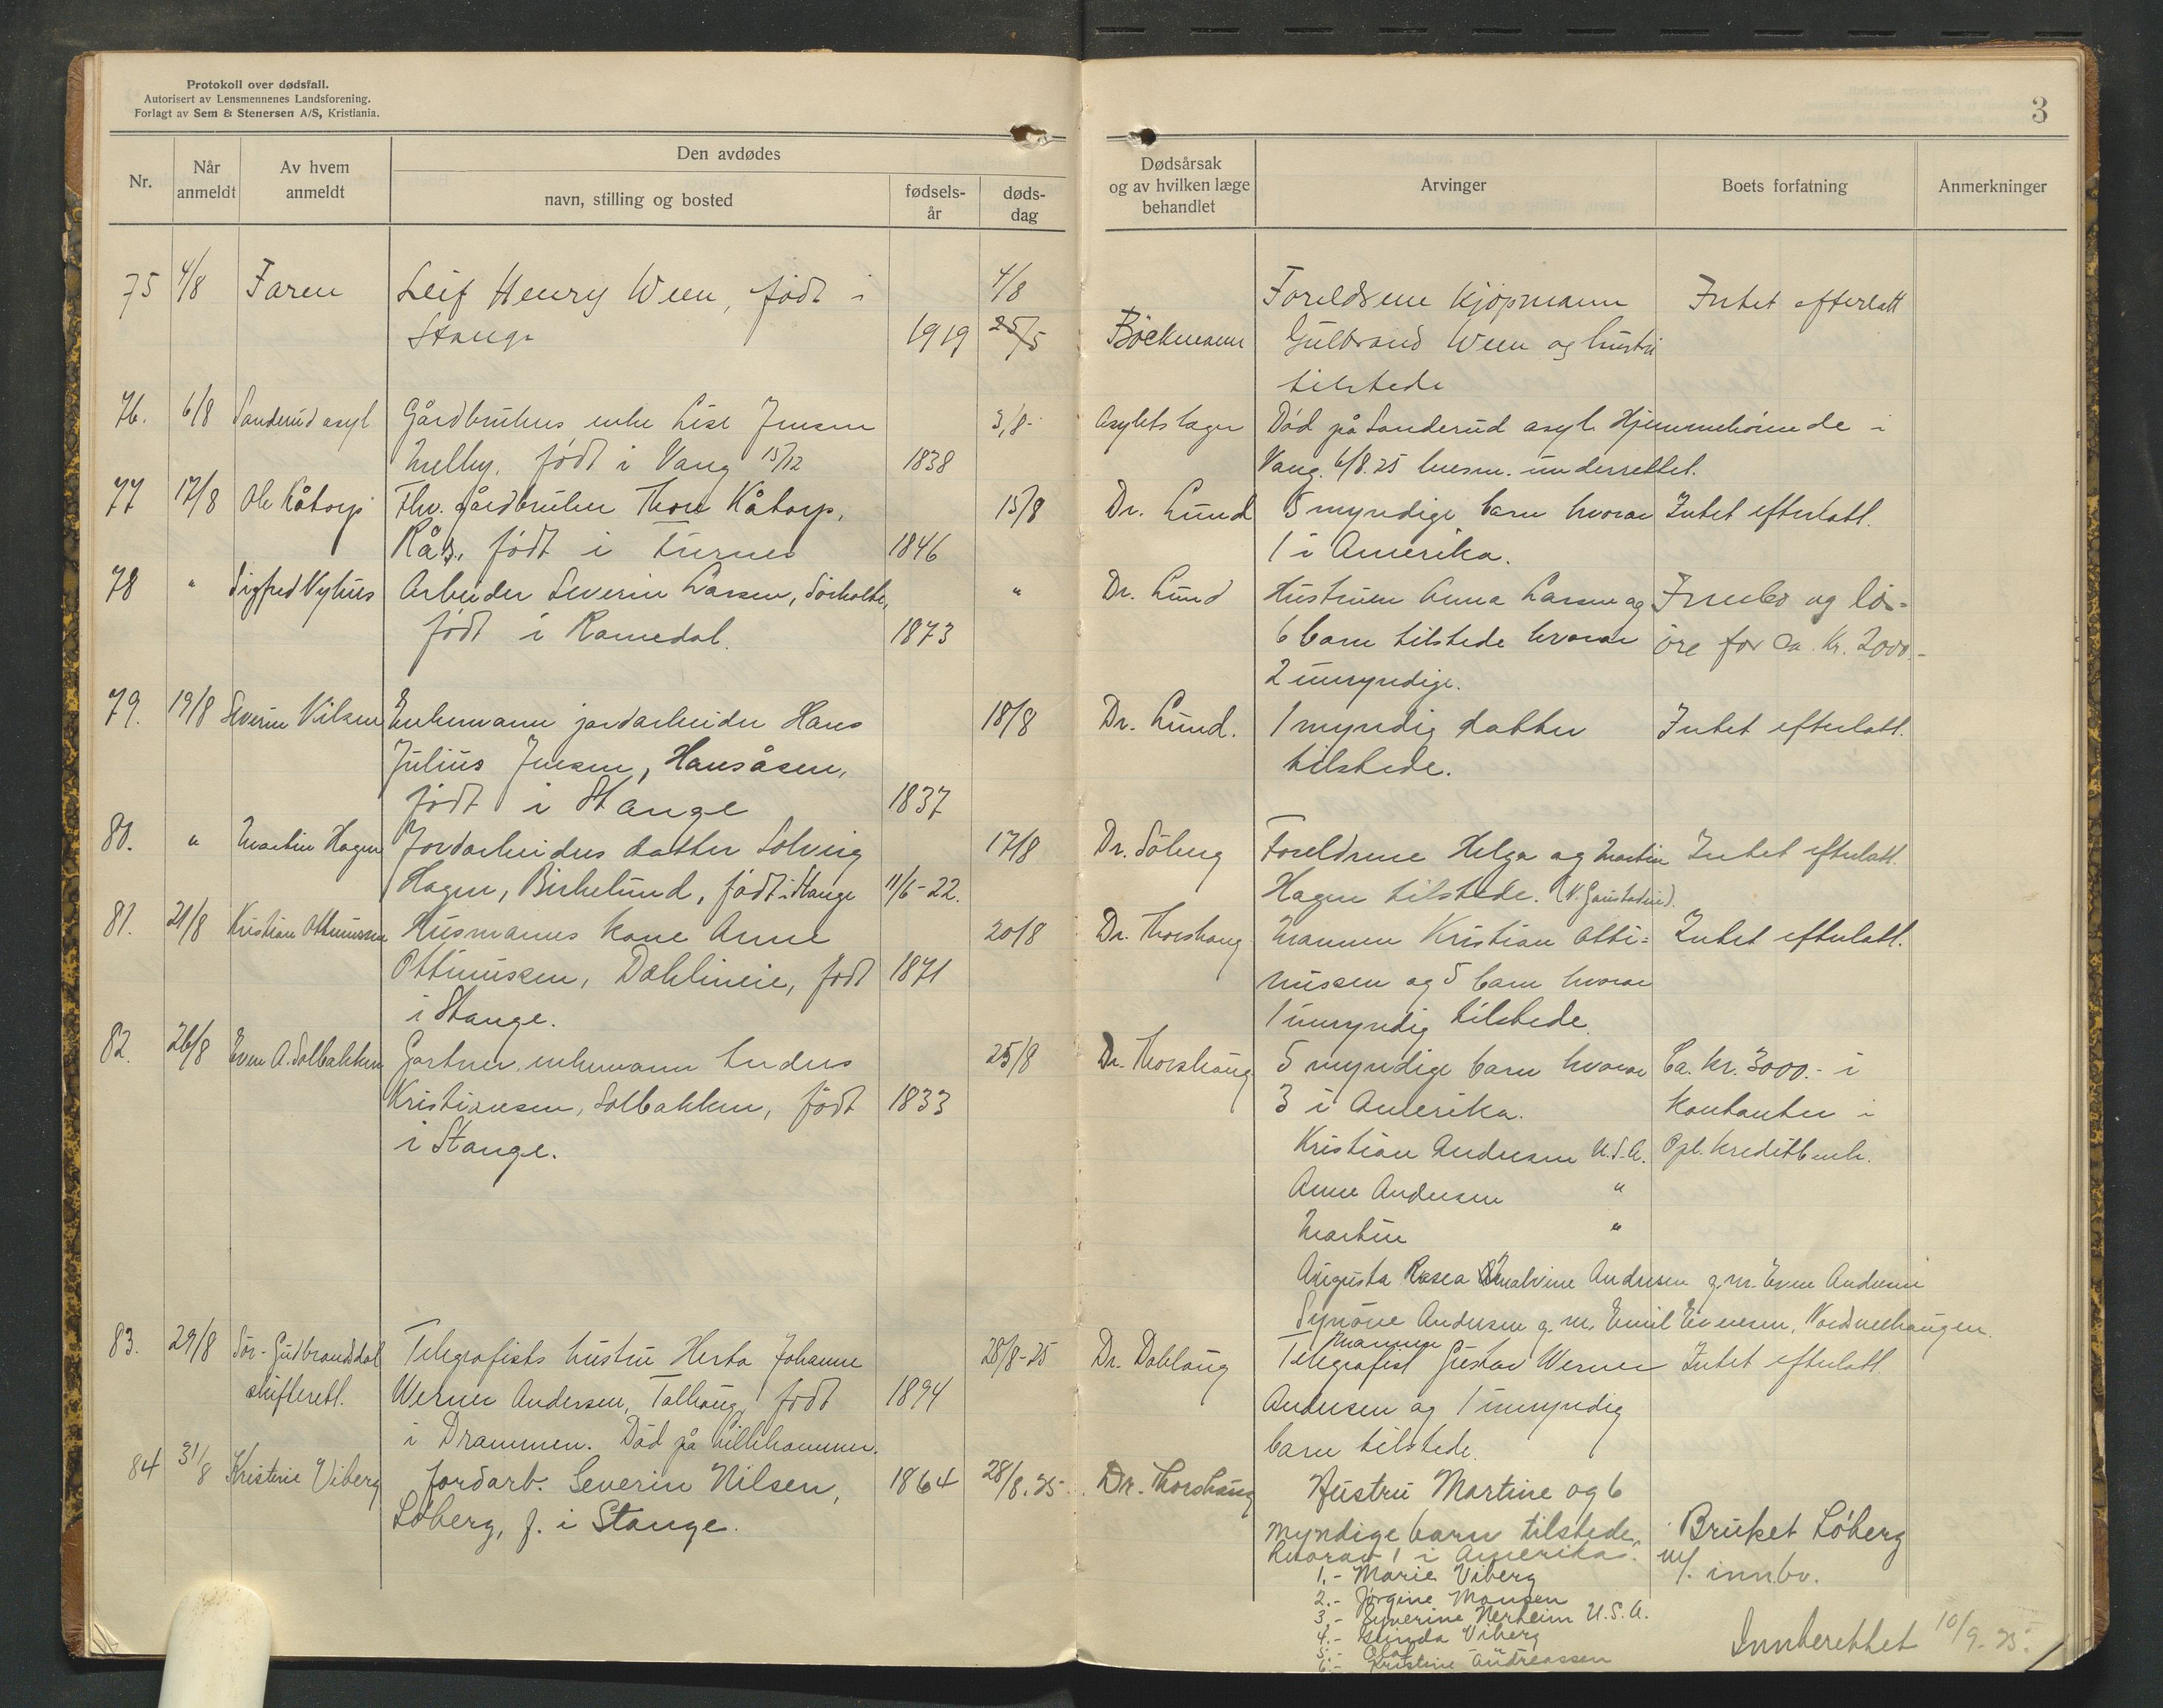 Protokoll over dødsfall.
Autorisert av Lensmennenes Landsforening.
Forlagt av Sem & Stenersen A/S, Kristiania.
3
Nr.
Når anmeldt
Av hvem anmeldt
Den avdødes
navn, stilling og bosted
fødselsår
dødsdag
Dødsårsak og av hvilken læge behandlet
Arvinger
Boets forfatning
Anmerkninger
75 4/8 Faren Leif Henry Ween, født i 4/8 Foreldrene Kjöpmann Intet efterlatt
Stange 1919 25/5 Böckmann Gulbrand Ween og hustru
tilstede
76. 6/8 Sanderud asyl Gårdbrukers enke Lise Jensen 3/8- Asylets læger Död på Sanderud asyl. Hjemmehörende i
Melby, født i Vang 15/12 1838 Vang. 6/8.25 lensm. underrettet.
77 17/8 Ole Kåtorp Fhv. gårdbruker Thore Kåtorp, 15/8 Dr. Lund 5 myndige barn hvorav Intet efterlatt.
født i 1846 1 i Amerika.
78 " Sigfred Nyhus Arbeider Severin Larsen, Sörholte, " Dr. Lund Hustruen Anna Larsen og Innbo og lös=
født i Romedal. 1873 6 barn tilstede hvorav öre for ca. kr. 2000.-
2 umyndige.
79. 19/8 Severin Nilsen Enkemann jordarbeider Hans 18/8 Dr. Lund. 1 myndig datter Intet efterlatt.
Julius Jensen, Hansåsen, tilstede.
født i Stange 1837
80. " Martin Hagen Jordarbeiders datter Solveig 17/8 Dr. Söberg Foreldrene Helga og Martin Intet efterlatt.
Hagen, Birkelund, födt i Stange 11/6-22. Hagen tilstede.
81. 21/8 Kristian Ottinussen Husmanns kone Anne 20/8 Dr. Thorshaug Mannen Kristian Otti= Intet efterlatt.
Ottinussen, Dæhlineie, født 1871 nussen og 5 barn hvorav
i Stange. 1 umyndig tilstede.
82. 26/8 Even A. Solbakken Gartner, enkemann Anders 25/8 Dr. Thorshaug 5 myndige barn hvorav Ca. kr. 3000.- i
Kristiansen, Solbakken, født 1833 3 i Amerika. kontanter i
i Stange. Kristian Andersen U.S.A. Opl. kreditbank.
Anne Andersen "
Martin "
Augusta Andersen g.m. Even Andersen
Synöve Andersen g.m. Emil Evensen,
83. 29/8 Sör-Gudbrandsdal Telegrafists hustru Herta Johanne 28/8-25 Dr. Dahlaug Mannen Telegrafist Gustav Werner Intet efterlatt.
skifterett. Werner Andersen, Tallhaug, født 1894 Andersen og 1 umyndig
i Drammen. Död på Lillehammer. barn tilstede.
84 31/8 Kristine Viberg Jordarb. Severin Nilsen, 1864 28/8.25. Dr. Thorshaug Hustru Martine og 6
Løberg, f. i Stange. myndige barn tilstede, Bruket Løberg
hvorav 1 i Amerika. m/. innbo.
1.- Marie Viberg
2.- Jørgine Monsen
3.- Syverine Nerheim U.S.A.
4.- Viberg
5.- Olaf "
6.- Kristine Andreassen
Innberettet 10/9-25.